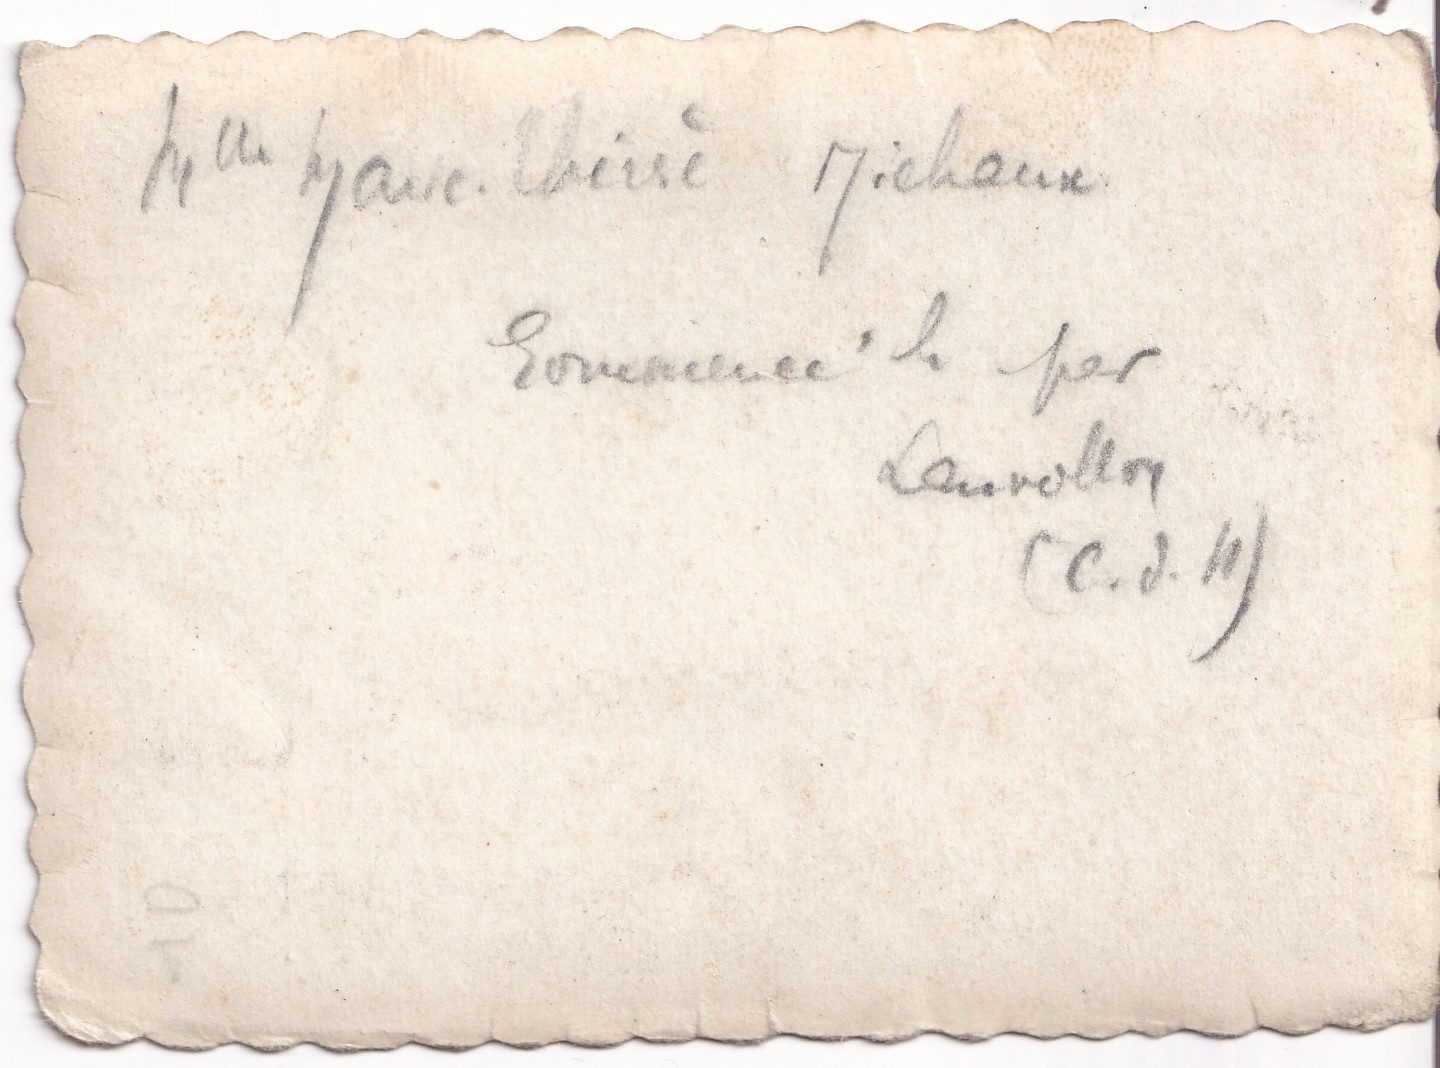 Mlle Marie-Thérèsè Michaux
Gommenec'h par
Lanvollon
(C. d. N)